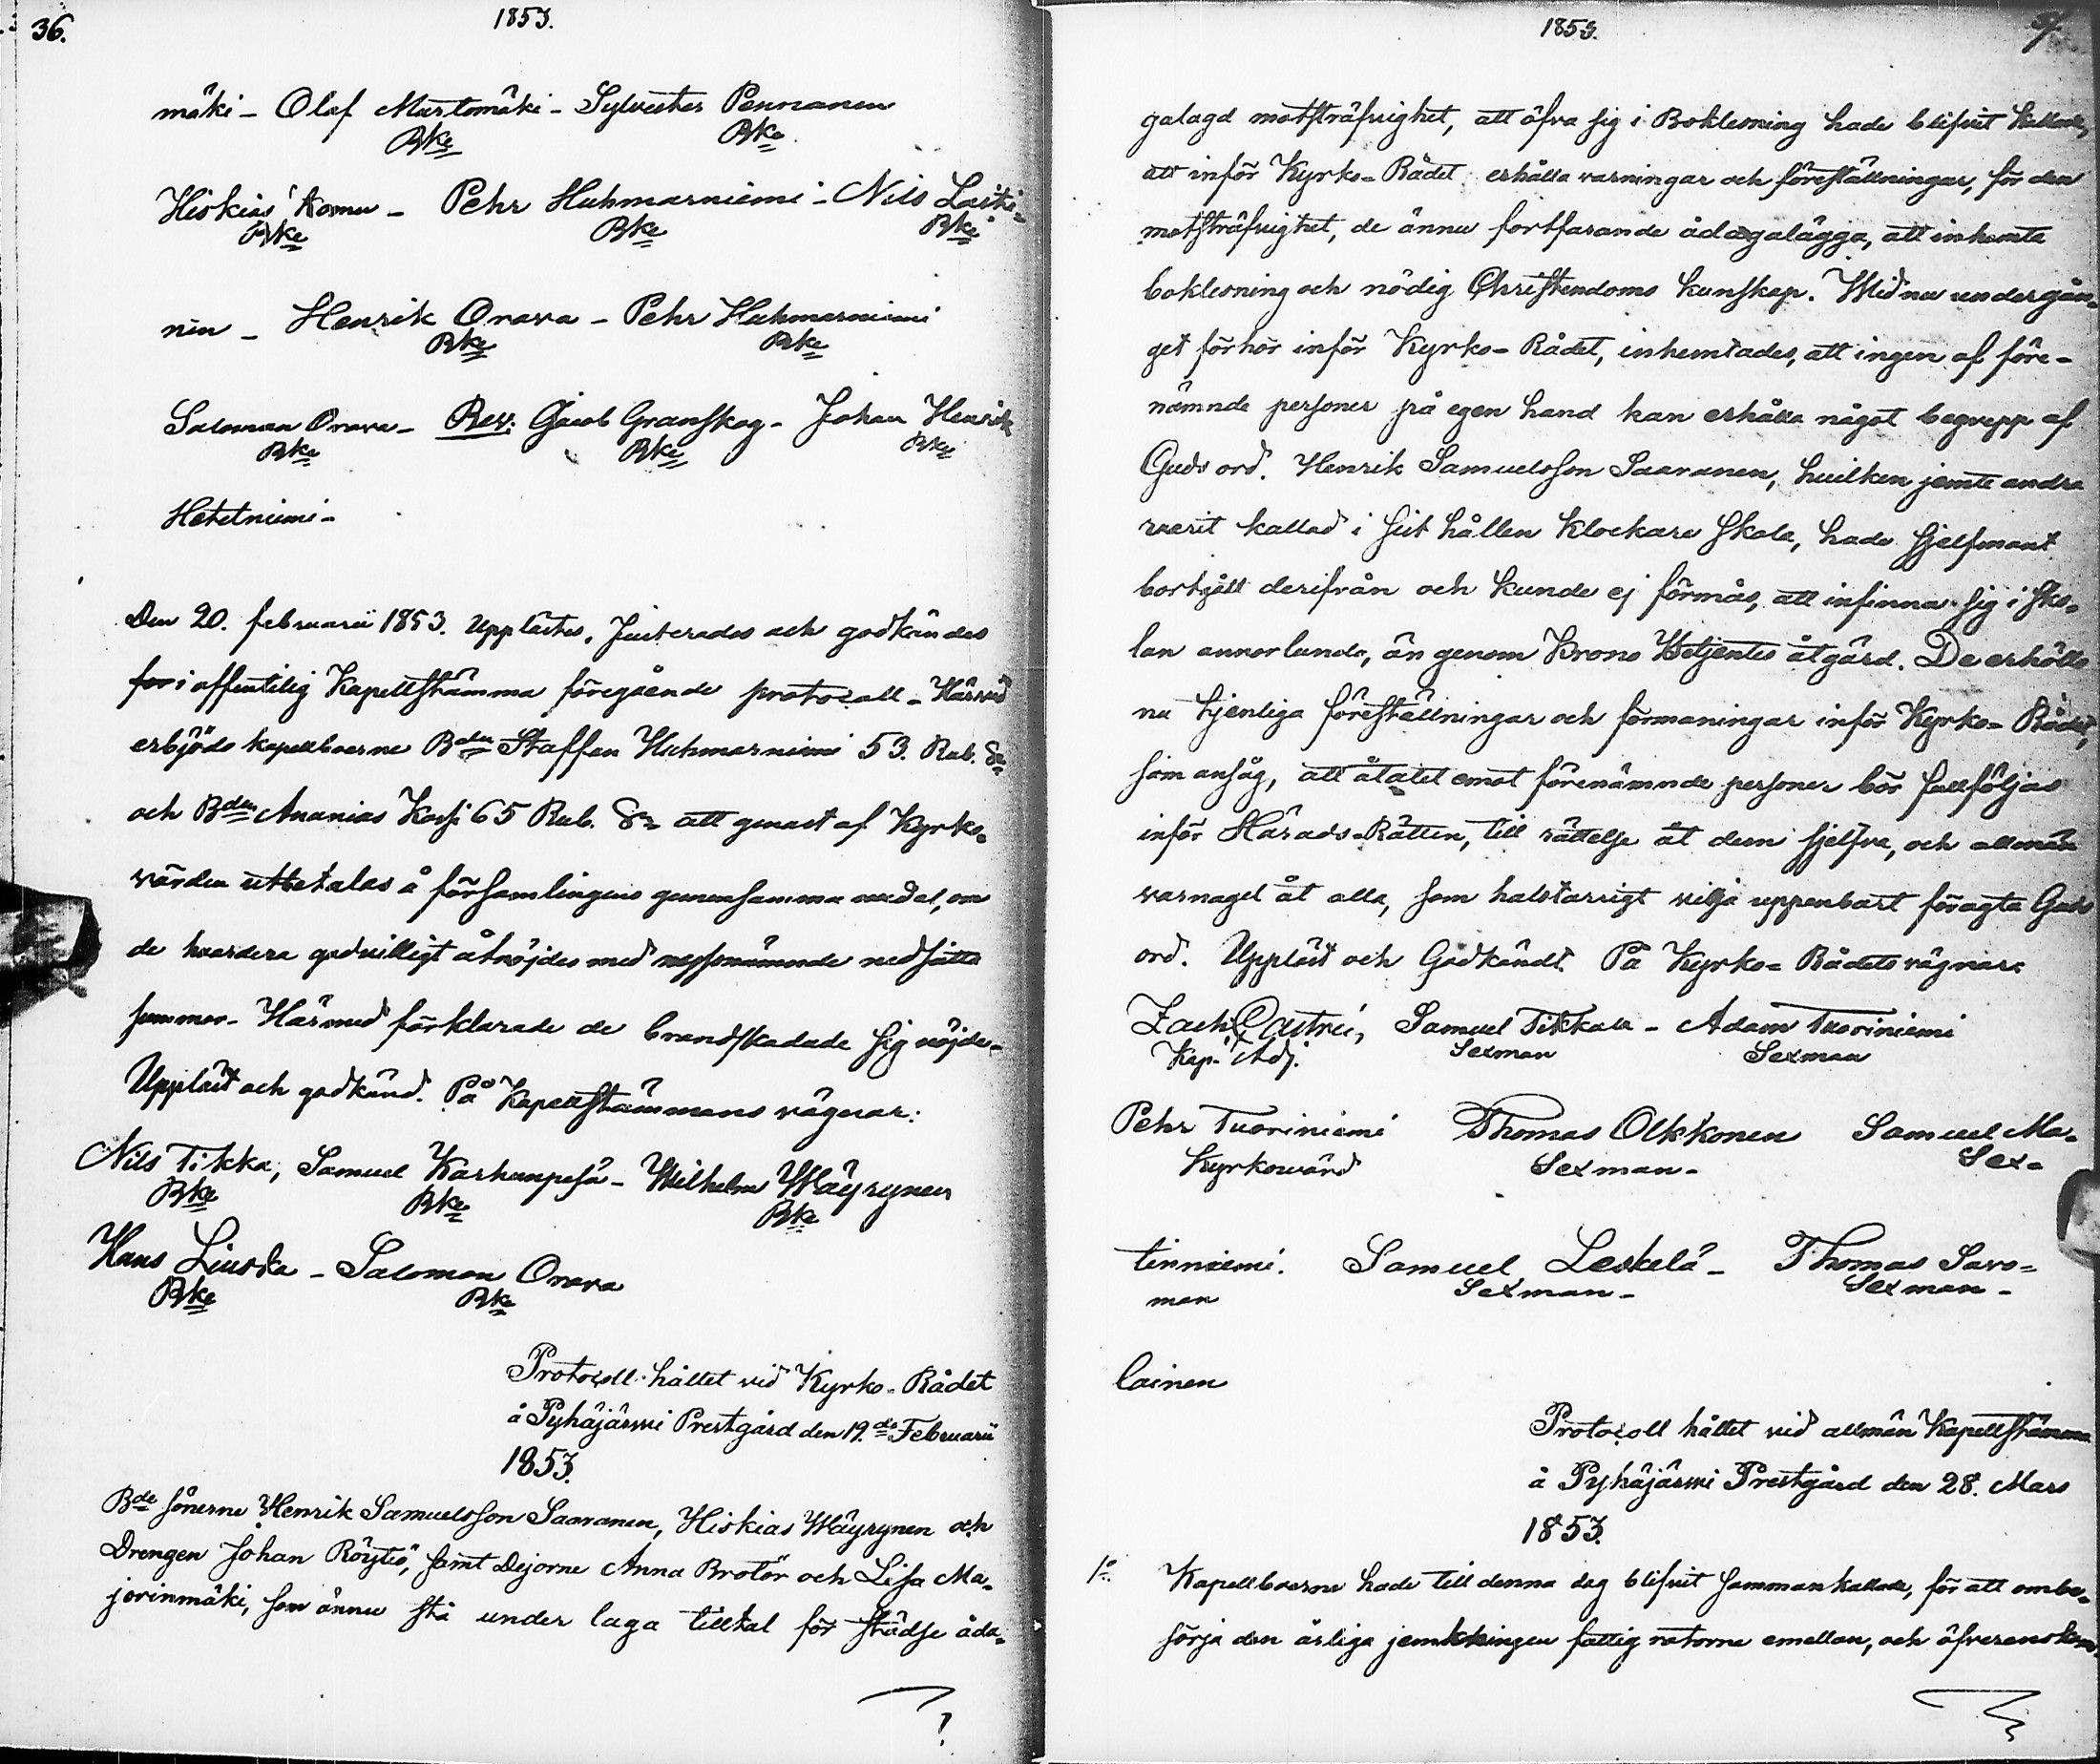 36.
1853.
mäki - Olof Murtomäki - Sylvester Pennanen
Bke Bke
Hiskias Komu - Pehr Huhmarniemi - Nils Laiti-
Bke Bke Bke
nin - Henrik Orava - Pehr Huhmarniemi
Bke Bke
Salomon Orava - Rev. Jacob Granskog - Johan Henrik
Bke Bke Bke
Hetetniemi -
Den 20. februarii 1853. Upplästes, Justerades och godkändes
for i offentelig Kapellstämma föregående protocoll - Härvid
erbjöds kapellboerne Bden Staffan Huhmarniemi 53. Rub. Sr
och Bden Ananias Kosi 65 Rub. Sr att genast af Kyrko-
värden utbetalas å församlingens gemensamma medel, om
de hvardera godvilligt åtnöjdes med nedsatta
summor - Härmed förklarade de brandskadade sig nöjde -
Uppläst och godkänd. På Kapellstämmans vägnar:
Nils Tikka, Samuel Karhunpesä - Wilhelm Wäyrynen
Bke Bke Bke
Hans Liuska - Salomon Orava
Bke Bke
Protocoll hållet vid Kyrko-Rådet
å Pyhäjärvi Prestgård den 19.de Februarii
1853.
Bde sönerne Henrik Samuelsson Saaranen, Hiskias Wäyrynen och
Drengen Johan Röytiö, samt Dejorne Anna Brotör och Lisa Ma-
jorinmäki, som ännu stå under laga tilltal för städse åda-
1853.
galagd motsträfvighet, att öfva sig i Boklesning hade blifvit kallade,
att inför Kyrko-Rådet erhålla varningar och föreställningar, för den
motsträfvighet, de ännu fortfarande ådagalägga, att inhemta
boklesning och nödig Christendoms kunskap. Wid nu undergån-
get förhör inför Kyrko-Rådet, inhemtades, att ingen af före-
nämnde personer på egen hand kan erhålla något begrepp af
Guds ord. Henrik Samuelsson Saaranen, hvilken jemte andra
varit kallad i sist hållen Klockare skola, hade sjelfmant
bortgått derifrån och kunde ej förmås, att infinna sig i sko-
lan annorlunda, än genom Krono Betjentes åtgärd. De erhöllo
nu tjenliga föreställningar och förmaningar inför Kyrko-Rådet,
som ansåg, att åtalet emot förenämnde personer bör fullföljas
inför Härads-Rätten, till rättelse åt dem sjelfva, och allmän
varnagel åt alla, som halstarrigt vilja uppenbart föragta Guds
ord. Uppläst och Godkändt. På Kyrko-Rådets vägnar:
Zach. Castrén, Samuel Tikkala - Adam Tuoriniemi
Kap. Adj. Sexman Sexman
Pehr Tuoriniemi Thomas Olkkonen Samuel Ma-
Kyrkovärd Sexman - Sex-
tinniemi. Samuel Leskelä - Thomas Savo-
man Sexman - Sexman -
lainen
Protocoll hållet vid allmän Kapellstämma
å Pyhäjärvi Prestgård den 28. Mars
1853.
1o. Kapellboerne hade till denna dag blifvit sammankallade, för att ombe-
sörja den årliga jemkningen fattig rotorne emellan, och öfverenskom